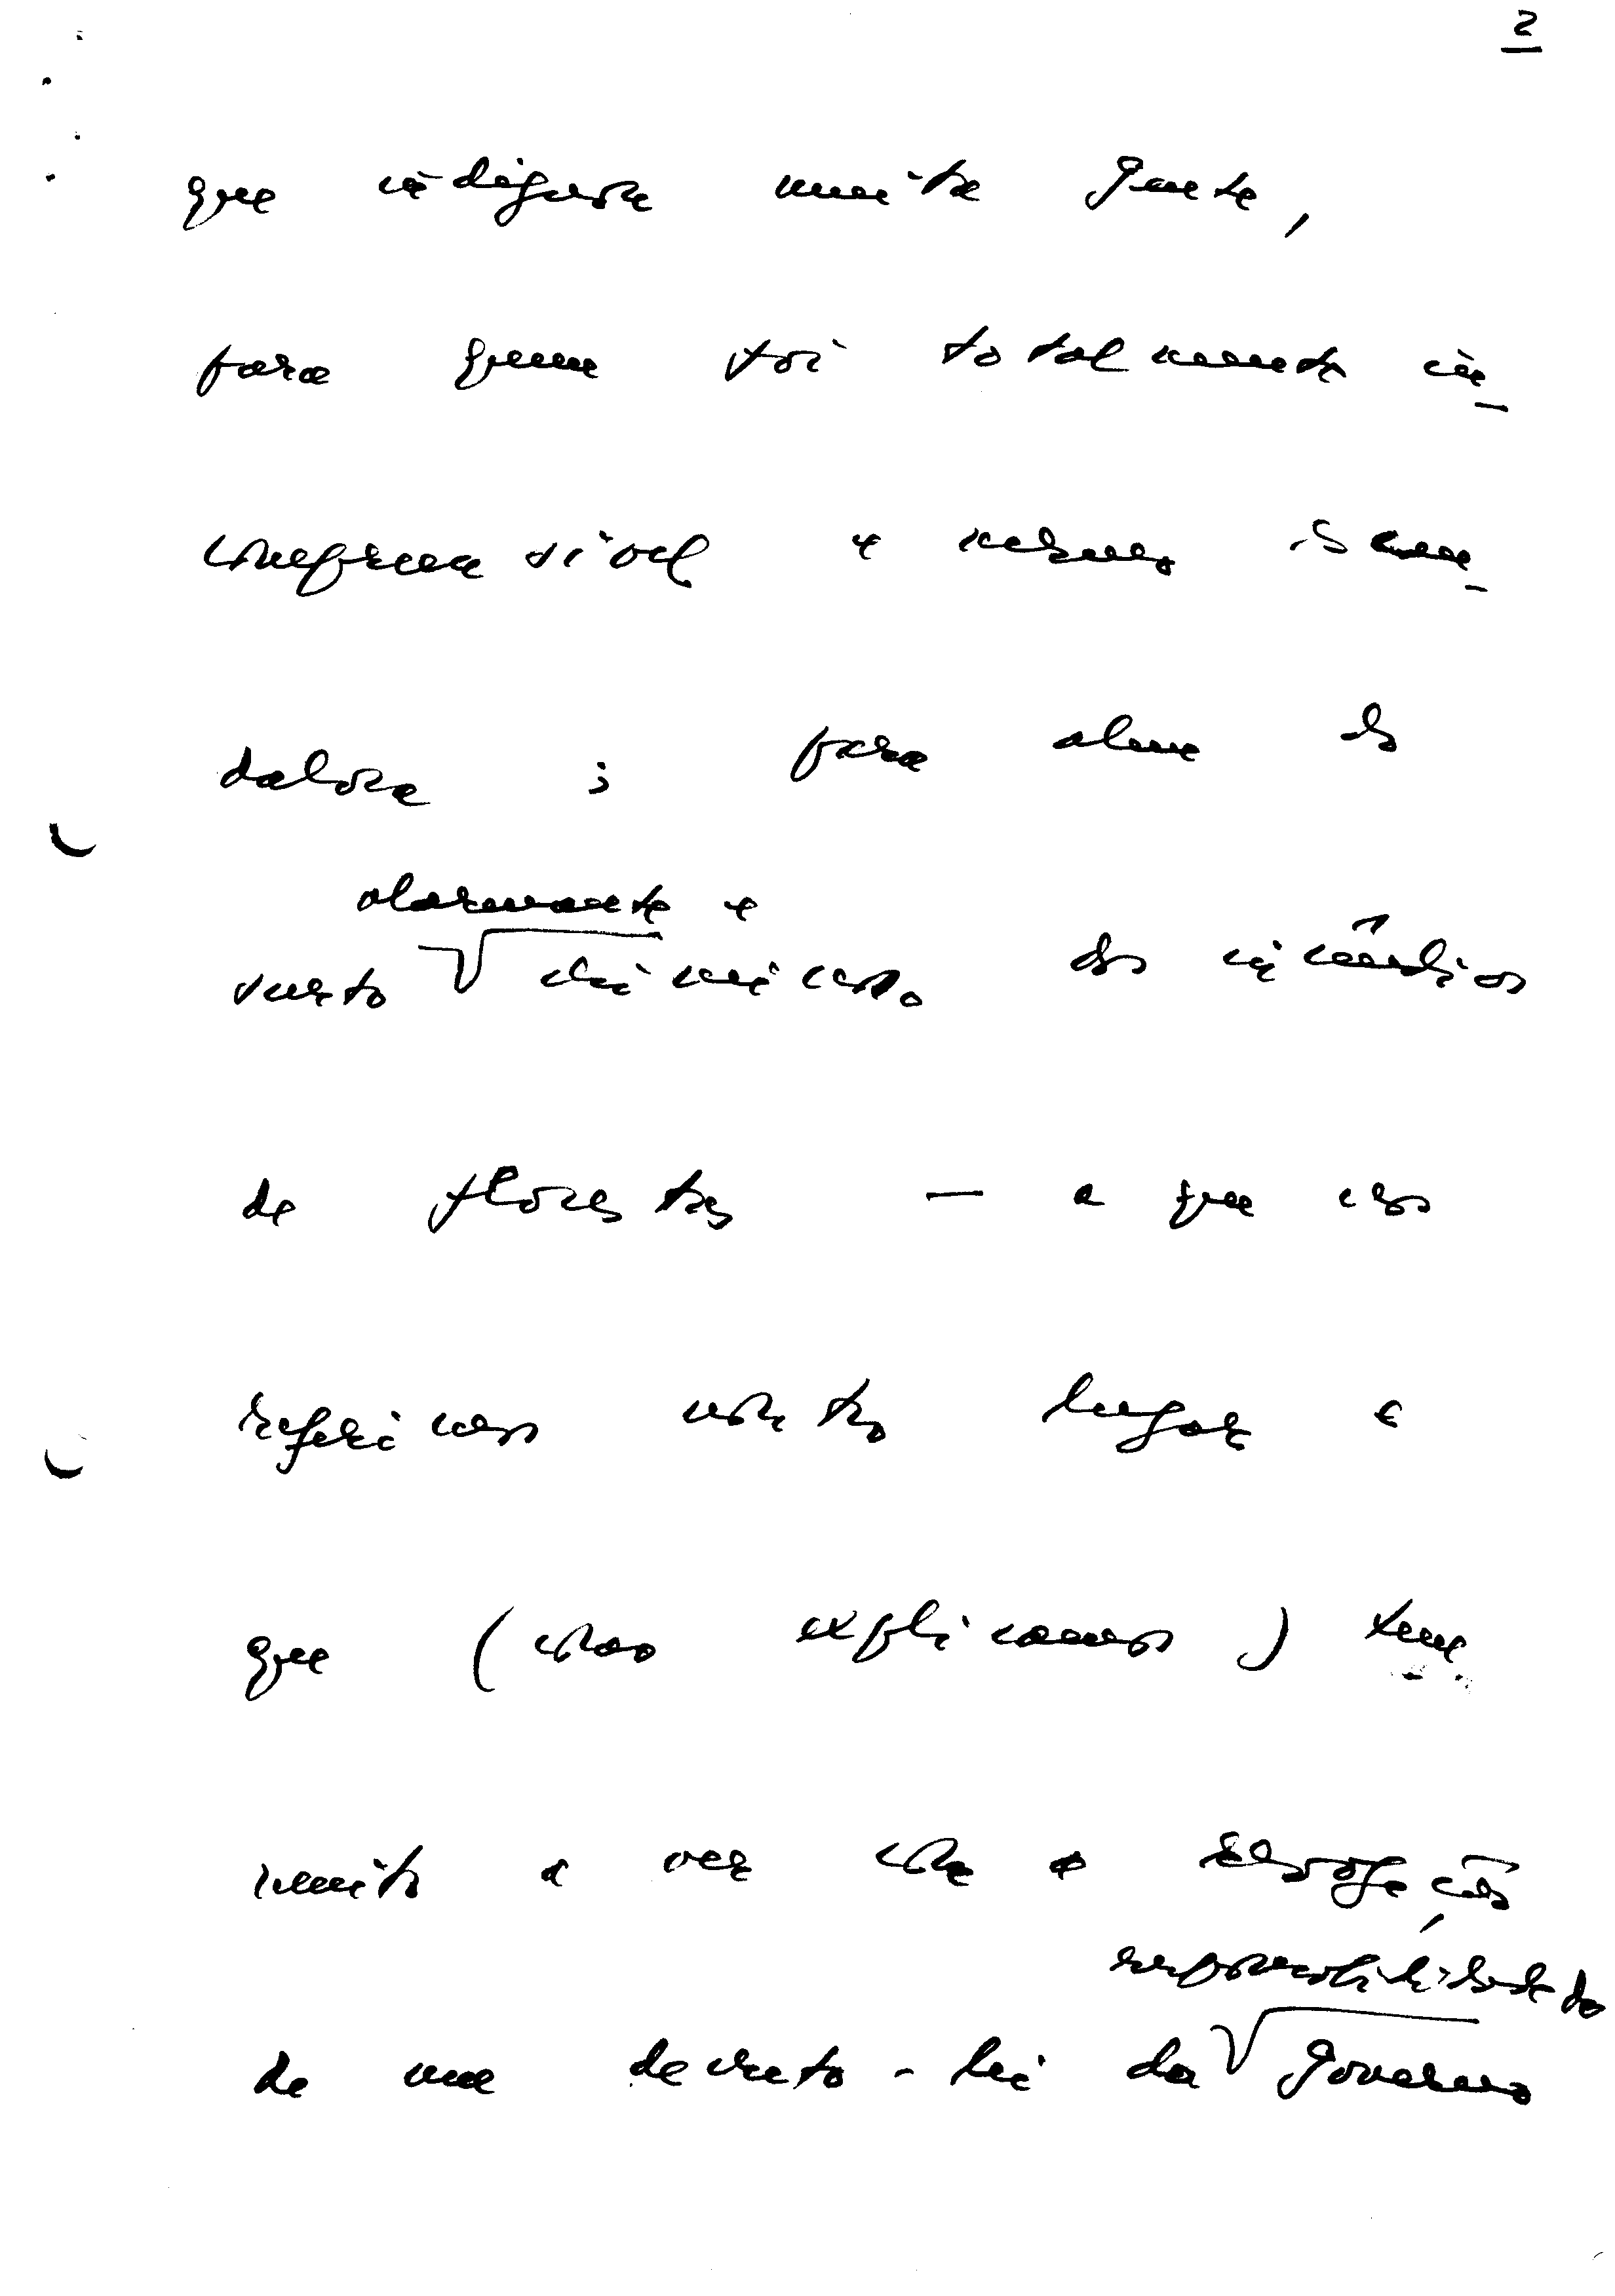 2
que indignou muita gente,
para quem foi totalmente in-
compreensível e mesmo
; para além do
alarmante e
surto criminoso dos incêndios
de florestas — a que nos
referimos noutro lugar e
que (como explicamos) tem
muito a ver com a revogação
responsabilidade do
de um decreto-lei da Governo